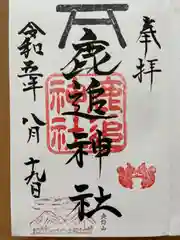 奉拝
鹿追神社
令和五年八月十九日
鹿追
神社